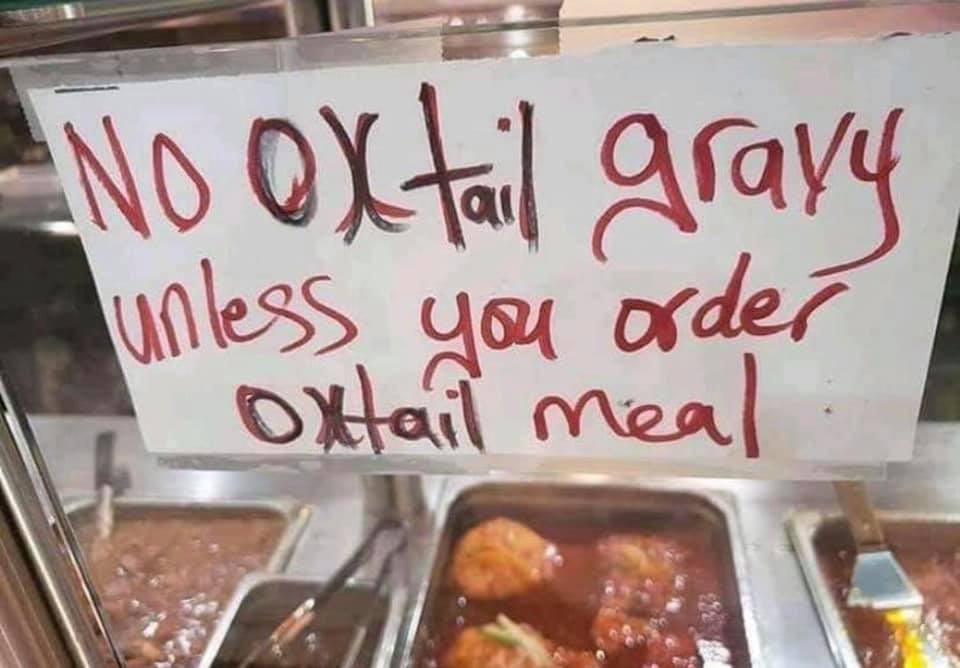 No oxtail gravy
unless you order
oxtail meal